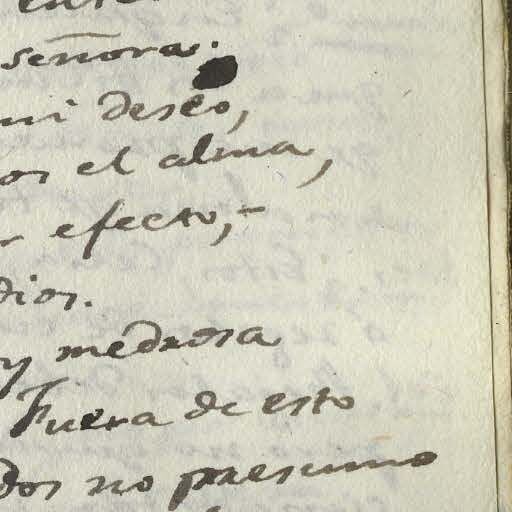 señora.
mi deseo,
os el alma,
r efecto,-
dios.
y medrosa
Fuera de esto
dos no presumo